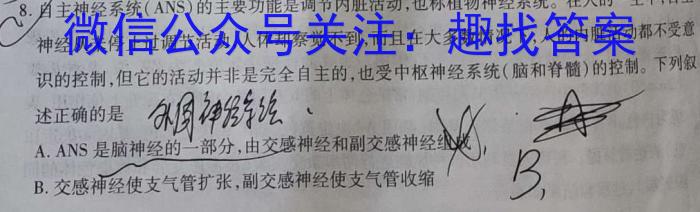 8.自主神经系统(ANS)的主要功能是调节内脏活动,也称植物神经系统。在人的一生中自主
微信公众号关注:趣找答案
神经
人体
察觉不到
且在大多
都不受意
识的控制,但它的活动并非是完全自主的,也受中枢神经系统(脑和脊髓)的控制。下列叙
述正确的是
外周神经系统
A. ANS是脑神经的一部分,由交感神经和副交感神经组成
B. 交感神经使支气管扩张,副交感神经使支气管收缩
B,